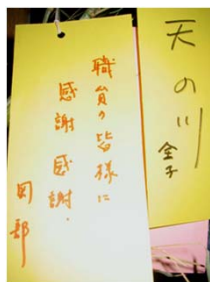 天の川
全子
職員の皆様に
感謝 感謝.
岡部